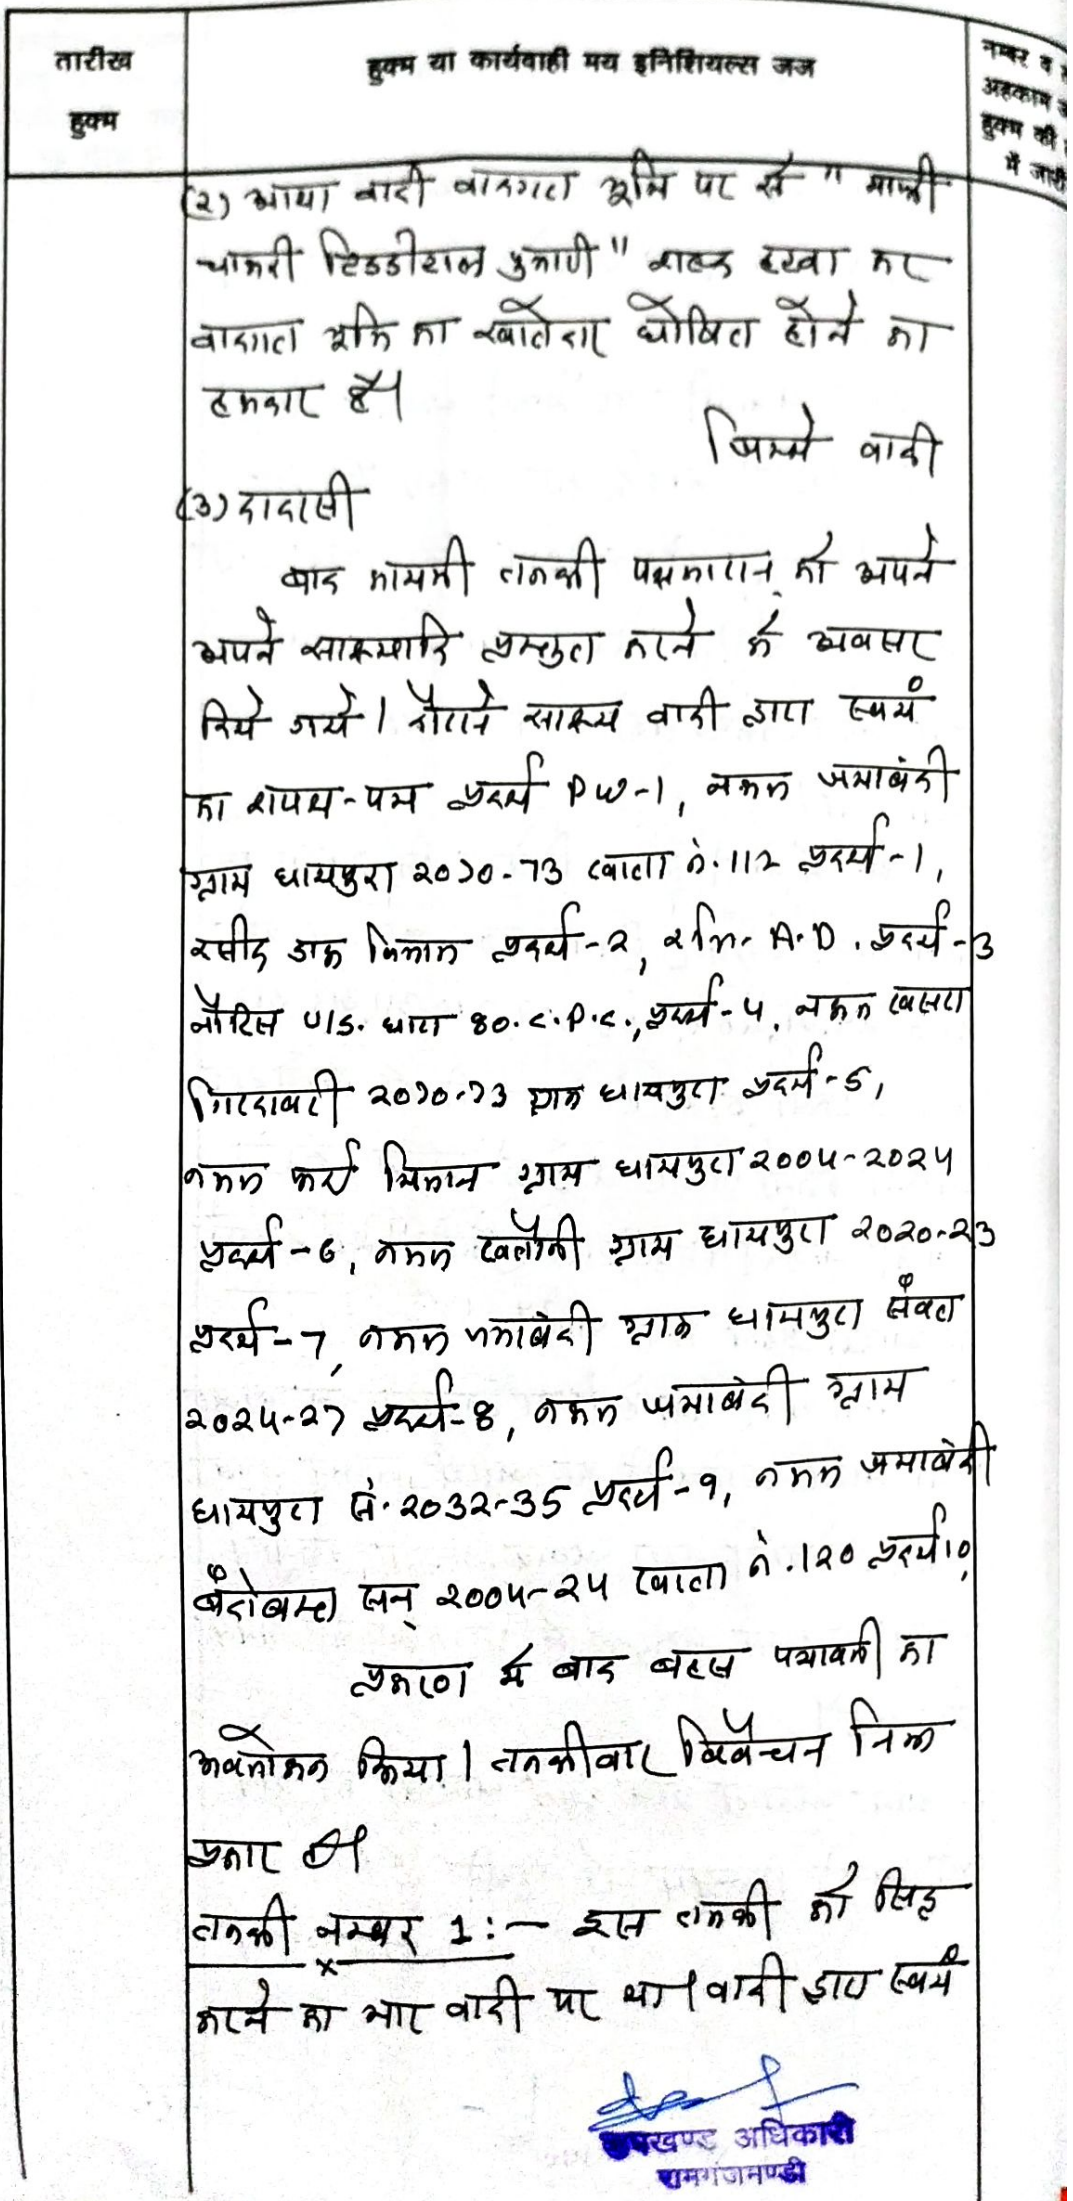 तारीख
हुक्म
हुक्म या कार्यवाही मय इनिशियल्स जज
नम्बर व
अहकाम
हुक्म की
में जारी
(2) आया वादी वादग्रस्त भूमि पर से "माफी
चाकरी टिडडीराल पुजारी" शब्द हटवा कर
वादग्रस्त भूमि का खातेदार घोषित होने का
हकदार है।
जिम्मे वादी
(3) दादरसी
बाद कायमी तनकी पक्षकारान् को अपने
अपने साक्ष्यादि प्रस्तुत करने के अवसर
दिये गये। दौराने साक्ष्य वादी द्वारा स्वयं
का शपथ-पत्र प्रदर्श PW-1, नकल जमाबंदी
ग्राम धायपुरा 2070-73 खाता नं. 112 प्रदर्श-1,
रसीद डाक विभाग प्रदर्श-2, रजि. A.D. प्रदर्श-3
नोटिस U/S. धारा 80. C.P.C., प्रदर्श-4, नकल खसरा
गिरदावरी 2070-73 ग्राम धायपुरा प्रदर्श-5,
नकल फर्द मिलान ग्राम धायपुरा 2004-2024
प्रदर्श-6, नकल खतौनी ग्राम धायपुरा 2020-23
प्रदर्श-7, नकल जमाबंदी ग्राम धायपुरा संवत
2024-27 प्रदर्श-8, नकल जमाबंदी ग्राम
धायपुरा सं. 2032-35 प्रदर्श-9, नकल जमाबंदी
बंदोबस्त सन् 2004-24 खाता नं. 120 प्रदर्श 10,
प्रकरण में बाद बहस पत्रावली का
अवलोकन किया। तनकीवार विवेचन निम्न
प्रकार है।
तनकी नम्बर 1:- इस तनकी को सिद्ध
करने का भार वादी पर था। वादी द्वारा स्वयं
उपखण्ड अधिकारी
रामगंजमण्डी